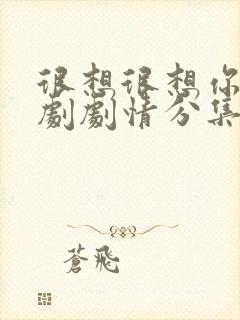 很想很想你
劇劇情分集
蒼飛